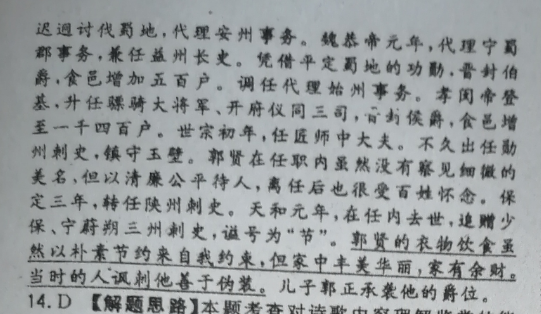 迟迥讨伐蜀地，代理安州事务。魏恭帝元年，代理宁蜀
郡事务，兼任益州长史。凭借平定蜀地的功勋，晋封伯
爵，食邑增加五百户。调任代理始州事务。孝闵帝登
基，升任骠骑大将军、开府仪同三司，晋封侯爵，食邑增
至一千四百户。世宗初年，任匠师中大夫。不久出任勋
州刺史，镇守玉壁。郭贤在任职内虽然没有察见细微的
美名，但以清廉公平待人，离任后也很受百姓怀念。保
定三年，转任陕州刺史。天和元年，在任内去世，追赠少
保、宁蔚朔三州刺史，谥号为“节”。郭贤的衣物饮食虽
然以朴素节约来自我约束，但家中丰美华丽，家有余财。
当时的人讽刺他善于伪装。儿子郭正承袭他的爵位。
14.D 【解题思路】本题考查对诗歌内容理解鉴赏的能